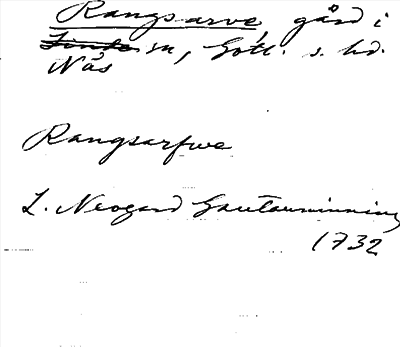 Rangsarve, gård i
Linde sn, Gotl. s. hd.
Näs
Rangsarfwe
L. Neogard Gautauminning
1732